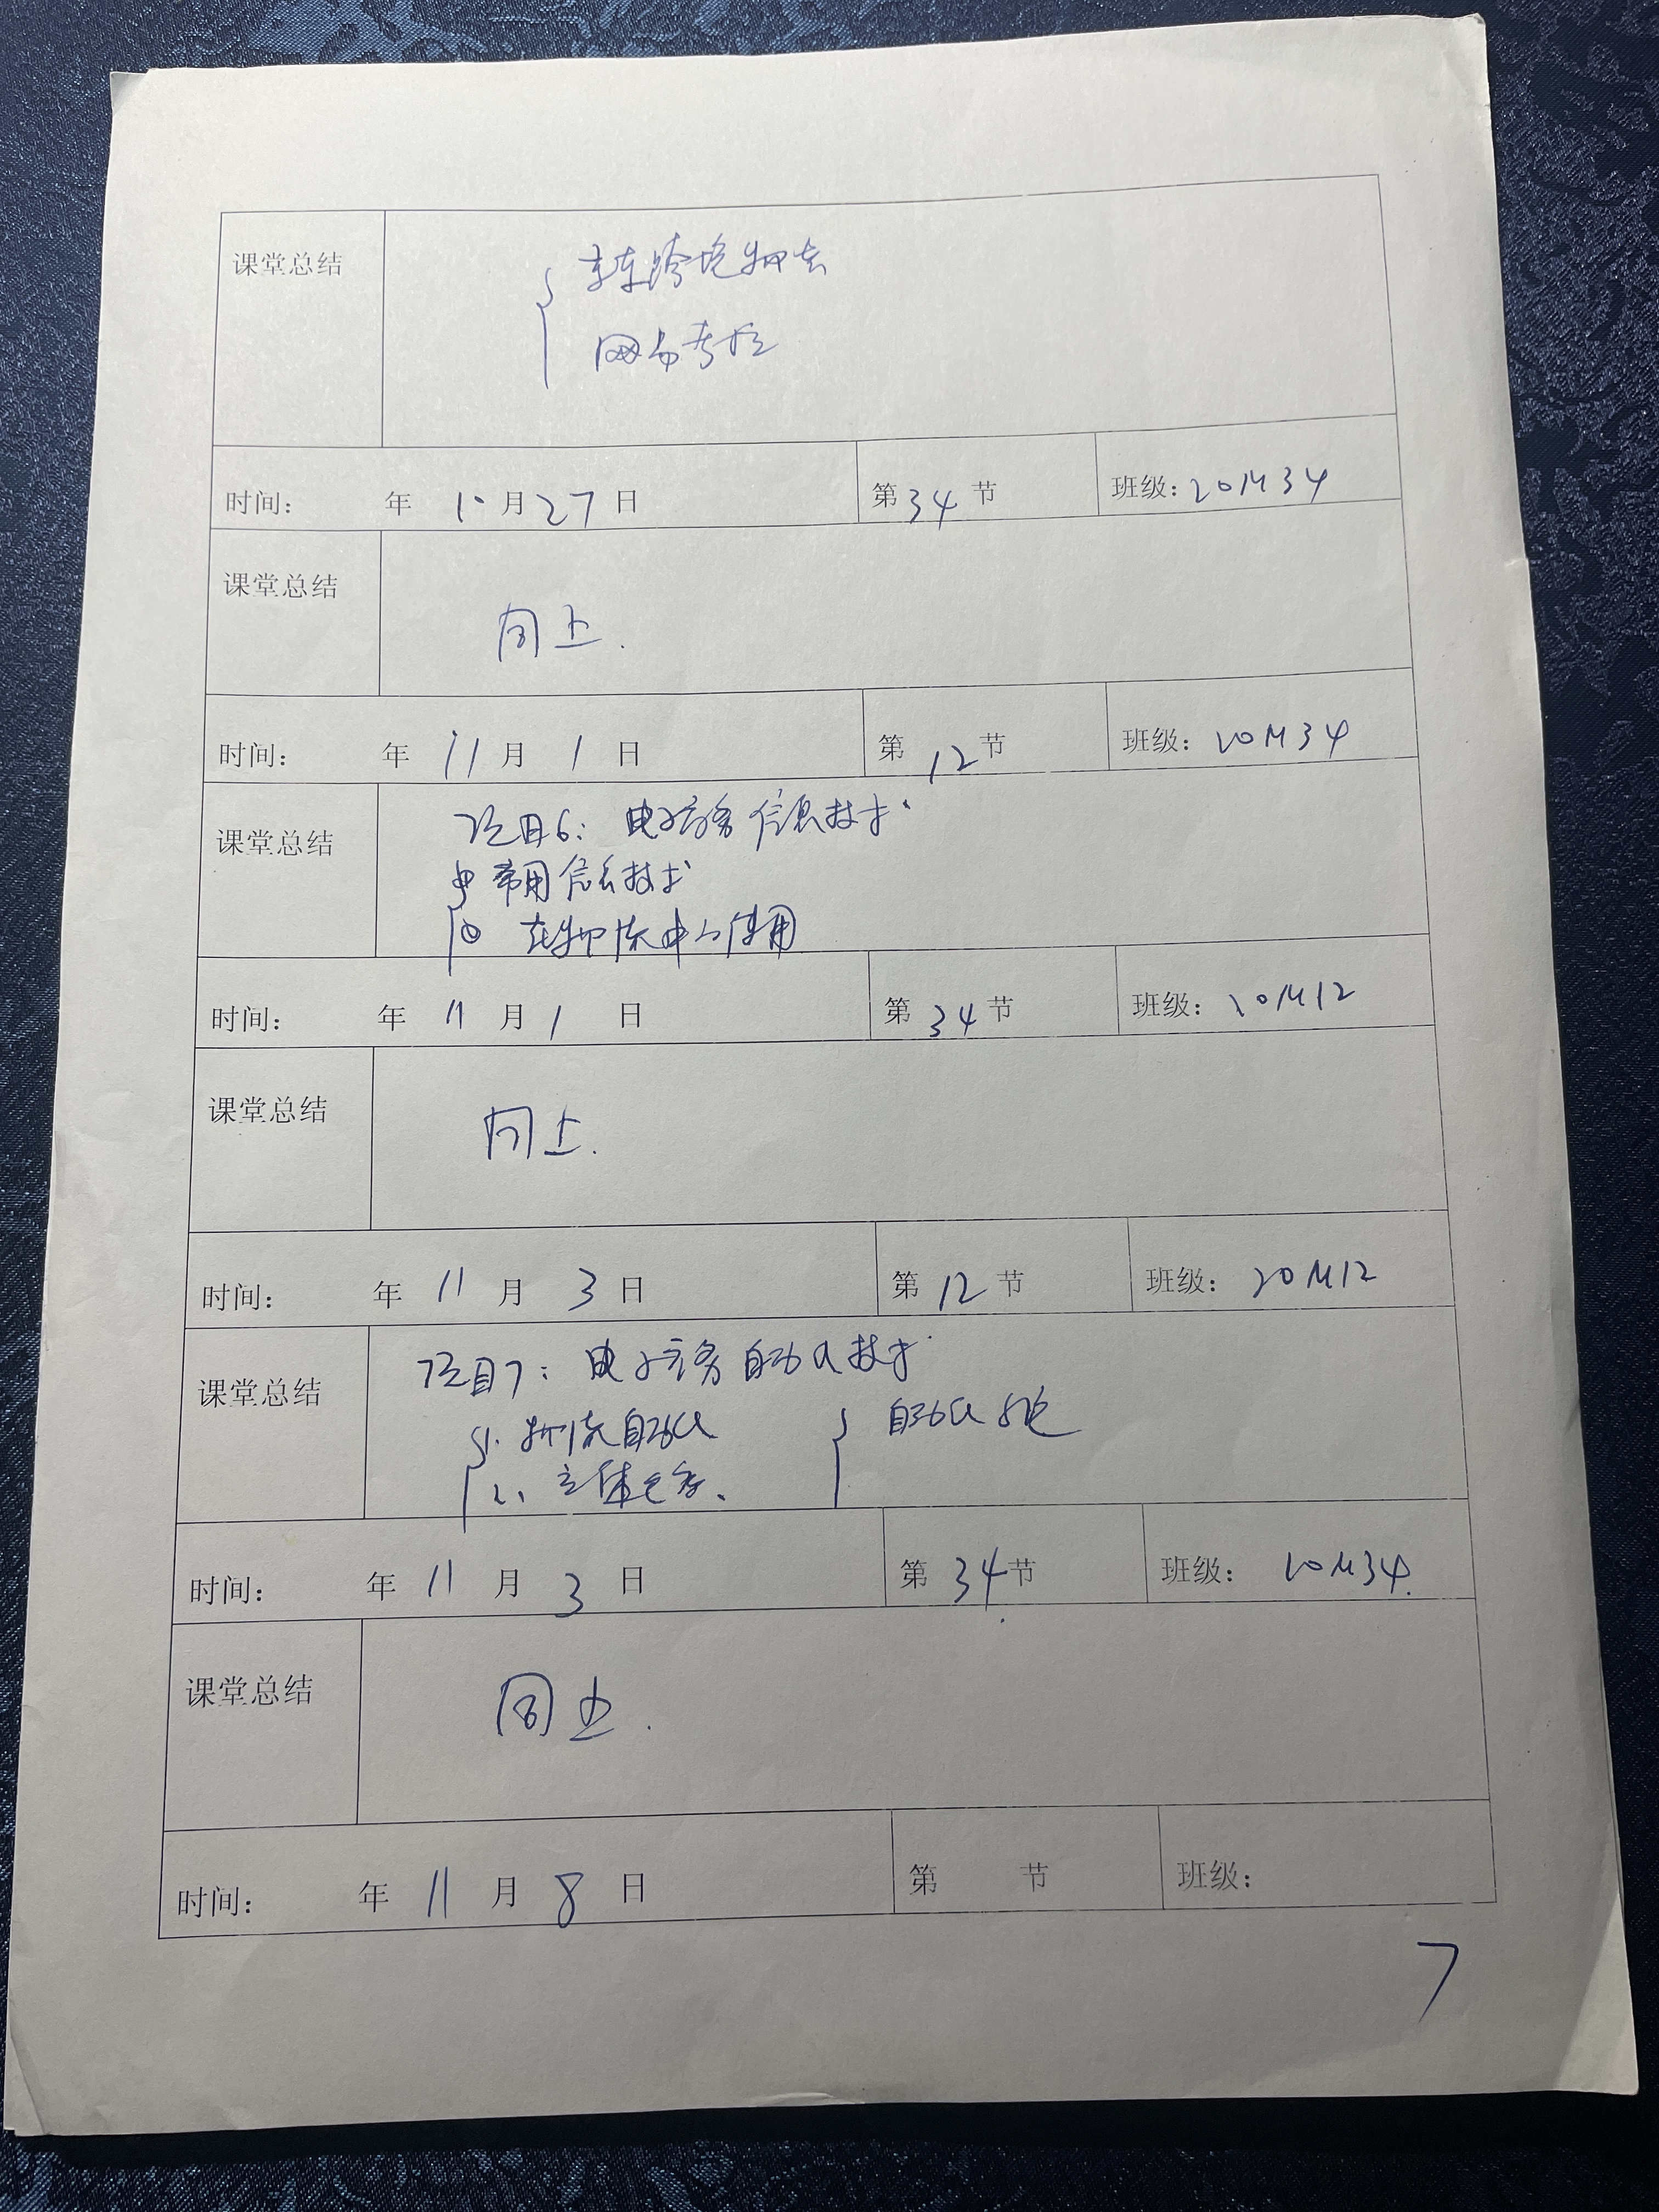 课堂总结
京东跨境物流
网易考拉
时间： 年 10 月 27 日 第 34 节 班级：20M34
课堂总结
同上.
时间： 年 11 月 1 日 第 12 节 班级：20M34
课堂总结
项目6：电子商务信息技术
① 常用信息技术
② 在物流中的使用
时间： 年 11 月 1 日 第 34 节 班级：20M12
课堂总结
同上.
时间： 年 11 月 3 日 第 12 节 班级：20M12
课堂总结
项目7：电子商务自动化技术
1. 物流自动化 自动化
2、立体仓库、
时间： 年 11 月 3 日 第 34 节 班级：20M34.
课堂总结
同上.
时间： 年 11 月 8 日 第 节 班级：
7